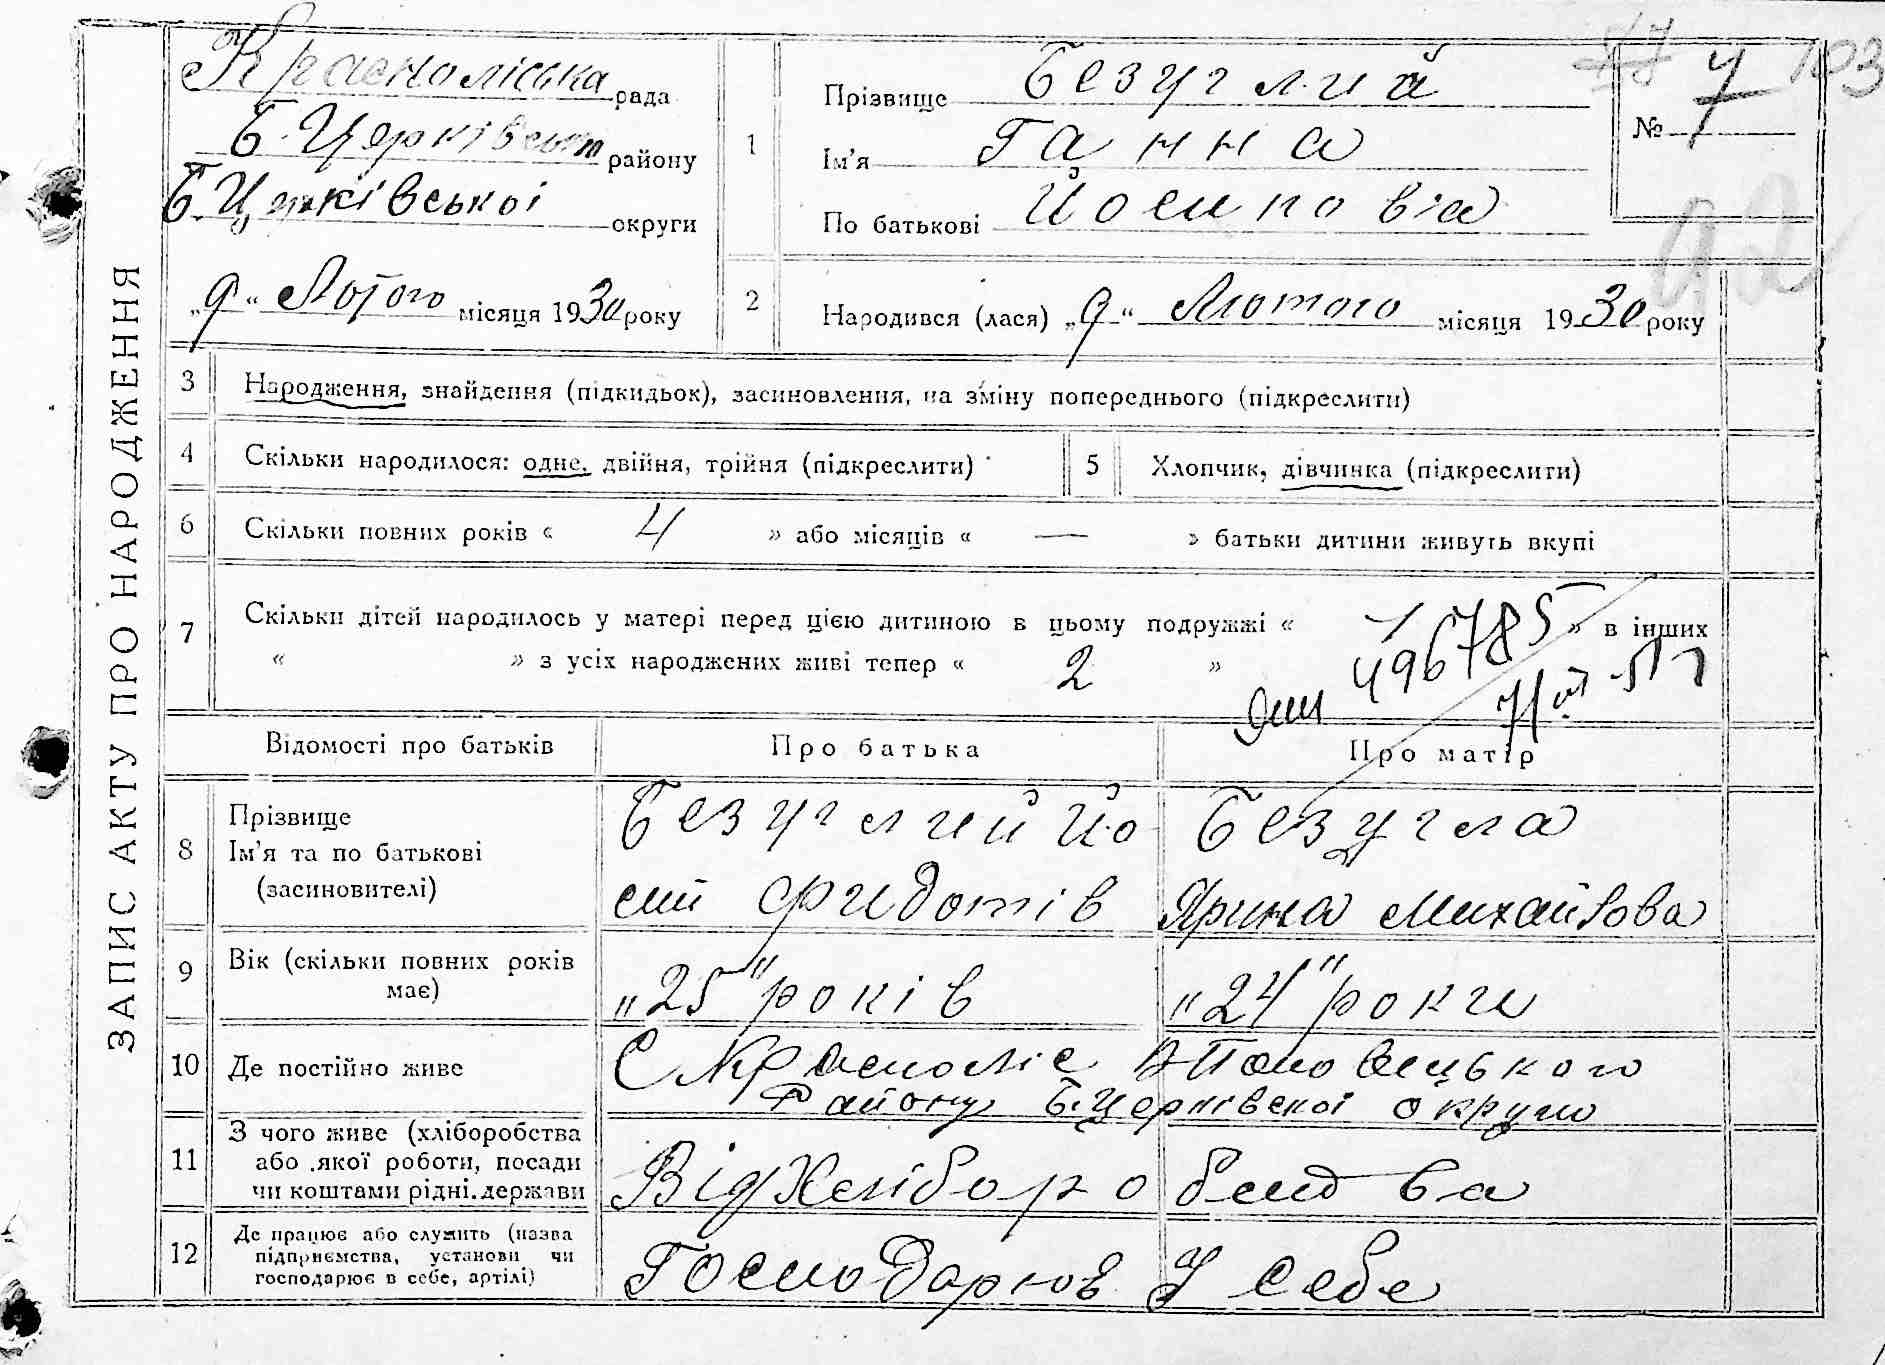 ЗАПИС АКТУ ПРО НАРОДЖЕННЯ
Красноліська рада
Б-Церківськ району
Б-Церківської округи
„9“ Лютого місяця 1930 року
1
Прізвище Безуглий
Ім’я Ганна
По батькові Йосиповіа
№ 7
103
92
2
Народився (лася) „9“ Лютого місяця 1930 року
3 Народження, знайдення (підкидьок), засиновлення, на зміну попереднього (підкреслити)
4 Скільки народилося: одне, двійня, трійня (підкреслити)
5 Хлопчик, дівчинка (підкреслити)
6 Скільки повних років « 4 » або місяців « — » батьки дитини живуть вкупі
7 Скільки дітей народилось у матері перед цією дитиною в цьому подружжі « 1 » в інших
« » з усіх народжених живі тепер « 2 »
496785
Відомості про батьків
Про батька
Про матір
8
Прізвище
Ім’я та по батькові
(засиновителі)
Безуглий Йо-
сип Фидотів
Безугла
Ярина Михайлова
9
Вік (скільки повних років
має)
„25“ років
„24“ роки
10 Де постійно живе
С Красноліс Поповецького
Району Б.Церківскої округи
11
З чого живе (хліборобства
або якої роботи, посади
чи коштами рідні, держави
Від Хліборобства
12
Де працює або служить (назва
підприємства, установи чи
господарює в себе, артілі)
Господарюв У себе